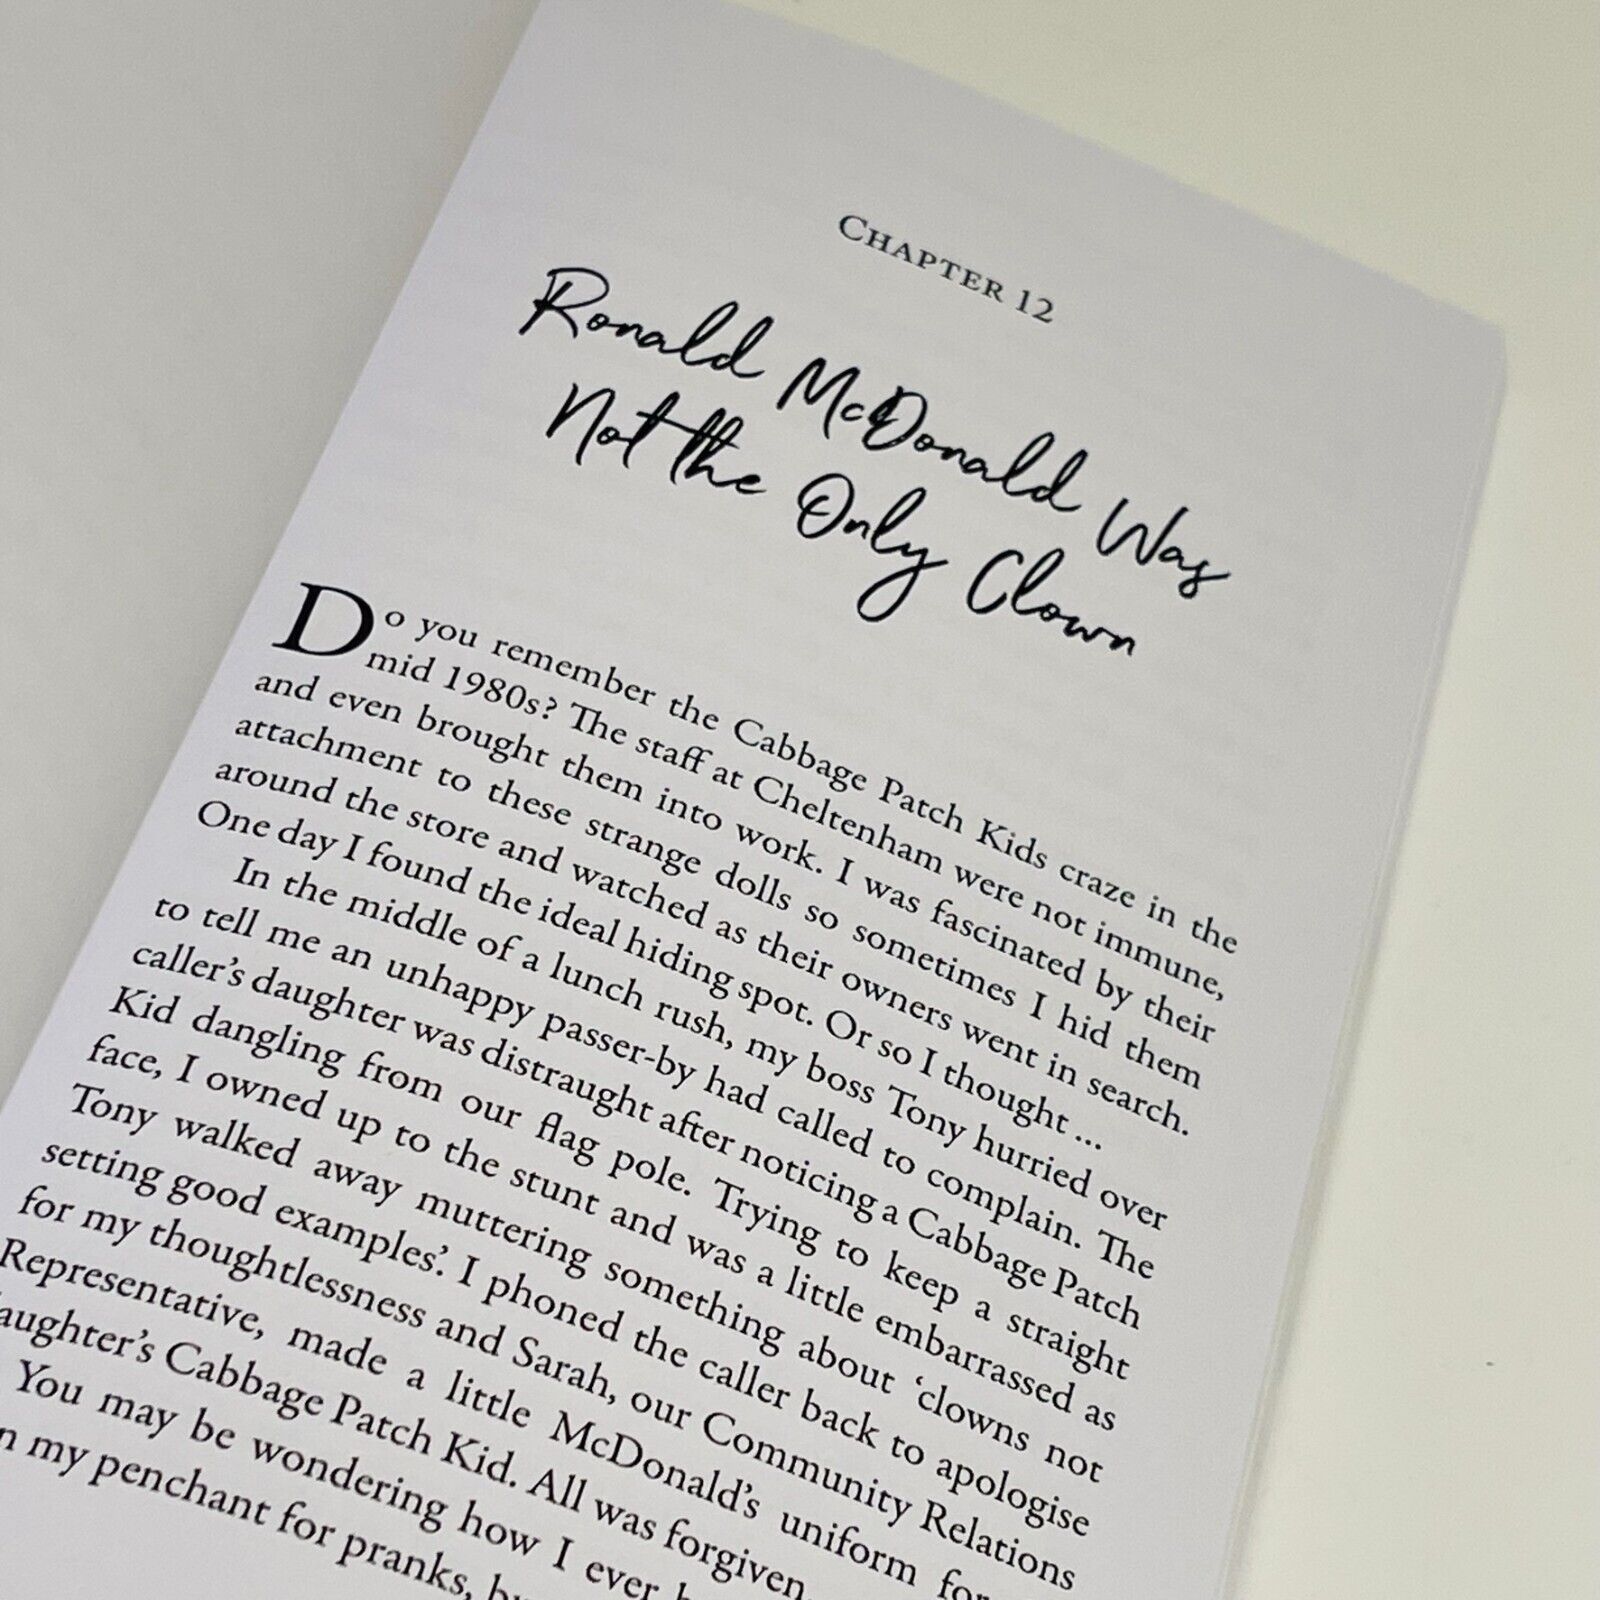 CHAPTER 12
Ronald McDonald Was
Not the Only Clown
Do you remember the Cabbage Patch Kids craze in the
mid 1980s? The staff at Cheltenham were not immune,
and even brought them into work. I was fascinated by their
attachment to these strange dolls so sometimes I hid them
around the store and watched as their owners went in search.
One day I found the ideal hiding spot. Or so I thought ...
In the middle of a lunch rush, my boss Tony hurried over
to tell me an unhappy passer-by had called to complain. The
caller's daughter was distraught after noticing a Cabbage Patch
Kid dangling from our flag pole. Trying to keep a straight
face, I owned up to the stunt and was a little embarrassed as
Tony walked away muttering something about 'clowns not
setting good examples'. I phoned the caller back to apologise
for my thoughtlessness and Sarah, our Community Relations
Representative, made a little McDonald's uniform for
daughter's Cabbage Patch Kid. All was forgiven.
You may be wondering how I ever
my penchant for pranks,